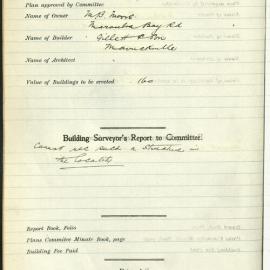 Plan approved by Committee
Name of Owner M.B. Moore
Maroubra Bay Rd
Name of Builder Gillett & Son
Marrickville
Name of Architect
Value of Buildings to be erected 160
Building Surveyor's Report to Committee:
Cannot rec such a structure in
the locality
Report Book, Folio
Plans Committee Minute Book, page
Building Fee Paid